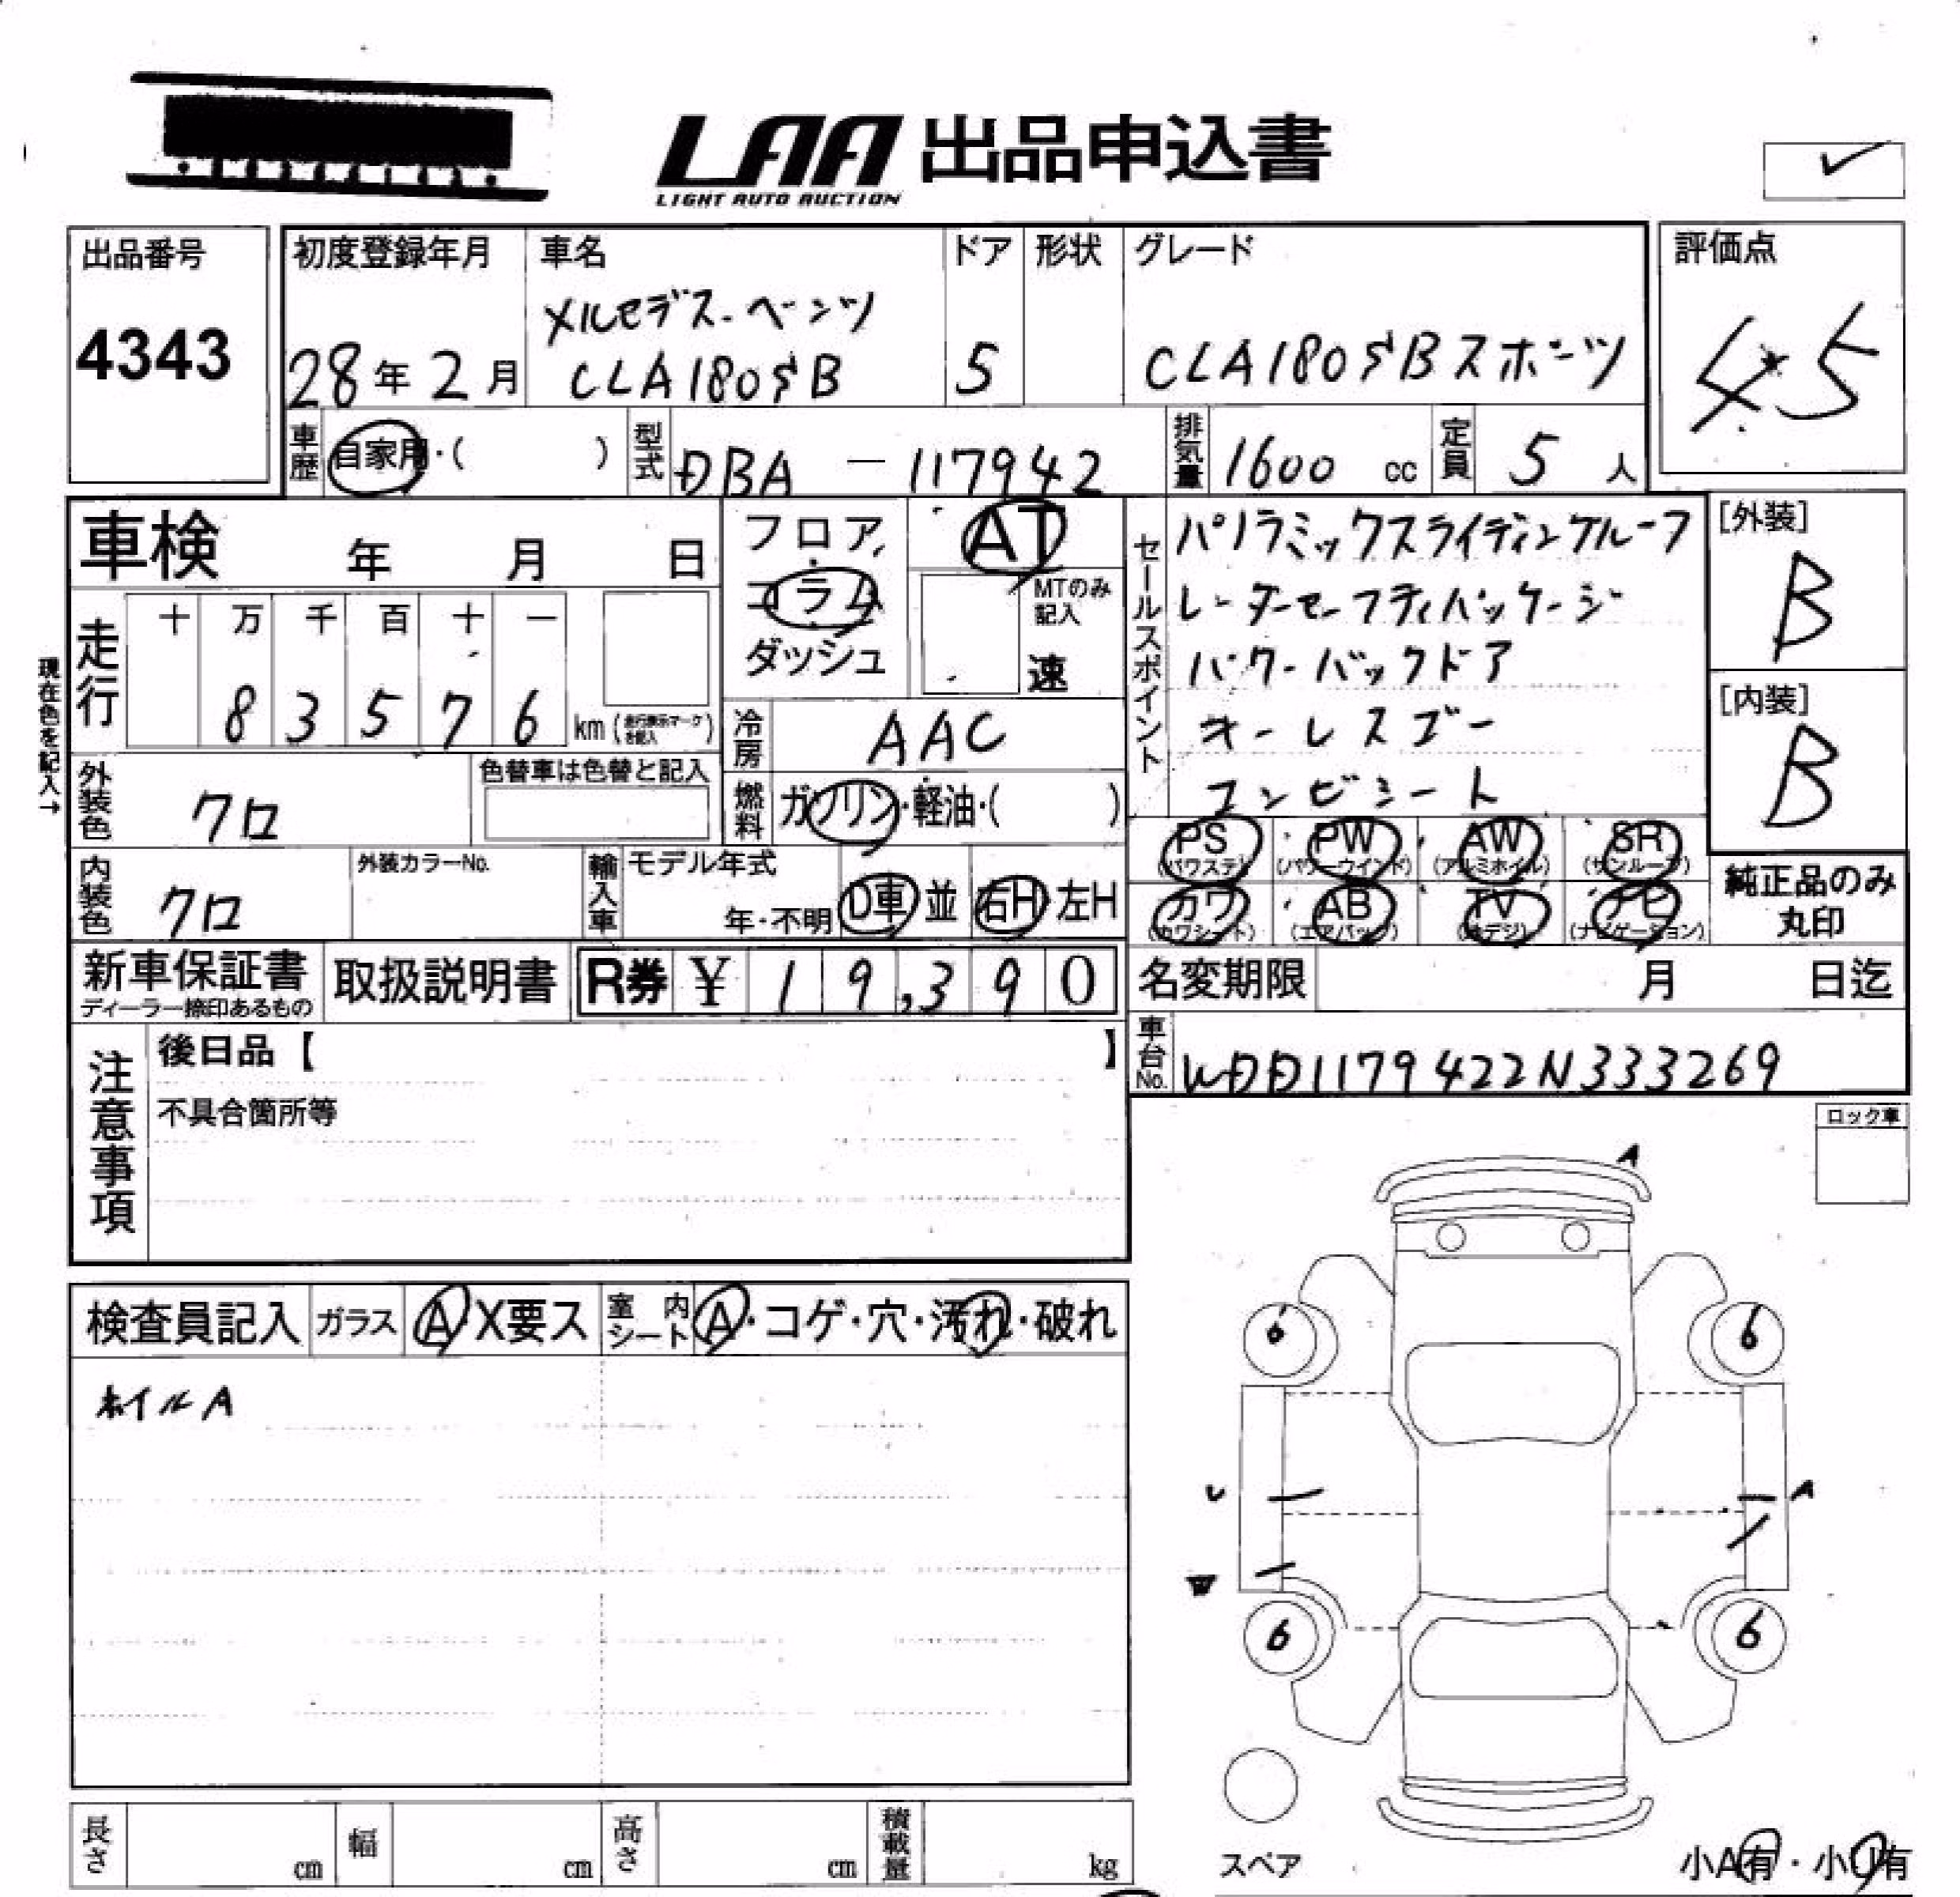 LAA 出品申込書
LIGHT AUTO AUCTION
出品番号
4343
初度登録年月
28年2月
車名
メルセデス-ベンツ
CLA180SB
ドア
5
形状
グレード
CLA180SBスポーツ
評価点
4.5
車歴
自家用・( )
型式
DBA - 117942
排気量
1600 cc
定員
5 人
車検 年 月 日
フロア
コラム
ダッシュ
AT
MTのみ
記入
速
セールスポイント
パノラミックスライディングルーフ
レーダーセーフティパッケージ
パワーバックドア
キーレスゴー
コンビシート
[外装]
B
[内装]
B
現在色を記入→
走行
十 万 千 百 十 一
8 3 5 7 6
km (走行表示マークを記入)
冷房
AAC
外装色
クロ
色替車は色替と記入
燃料
ガソリン・軽油・( )
PS
(パワステ)
PW
(パワーウインド)
AW
(アルミホイル)
SR
(サンルーフ)
カワ
(カワシート)
AB
(エアバッグ)
TV
(地デジ)
ナビ
(ナビゲーション)
純正品のみ
丸印
内装色
クロ
外装カラーNo.
輸入車
モデル年式
年・不明
D車 並
右H 左H
新車保証書
ディーラー捺印あるもの
取扱説明書
R券 ¥ 19,390
名変期限 月 日迄
車台No.
WDD1179422N333269
注意事項
後日品【 】
不具合箇所等
ロック車
検査員記入
ガラス
A X要ス
室内シート
A・コゲ・穴・汚れ・破れ
ホイルA
A
6
6
U
A
W
6
6
スペア
小A有・小U有
長さ cm
幅 cm
高さ cm
積載量 kg